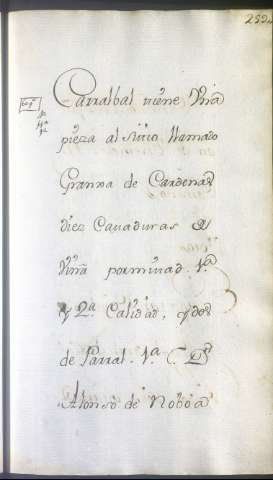 252
Carralbal tiene Viña
pieza al sitio llamado
Granxa de Cardenas
diez Cavaduras de
Viña por mitad 1ª
y 2ª Calidad, y dos
de Parral 1ª C. Dn
Alonso de Noboa